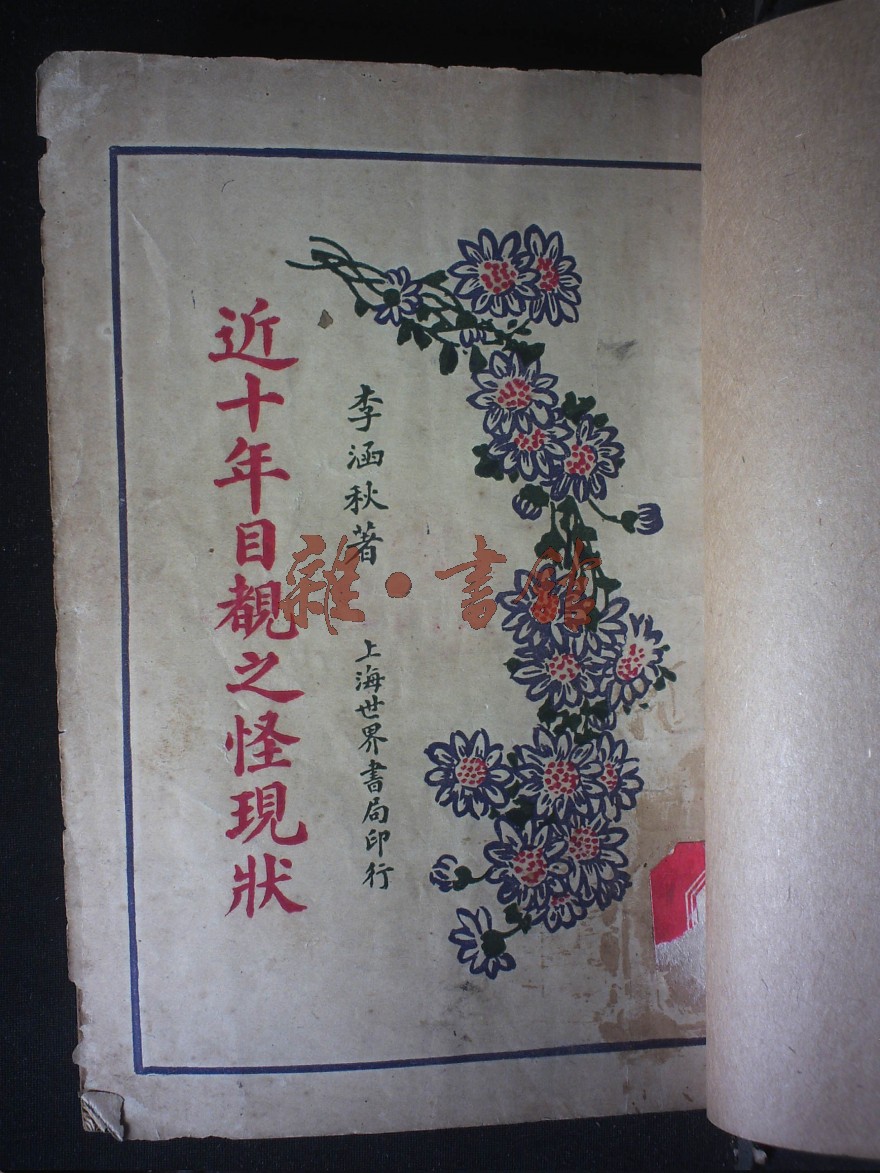 近十年目覩之怪現狀
李涵秋著
上海世界書局印行
雜·書館